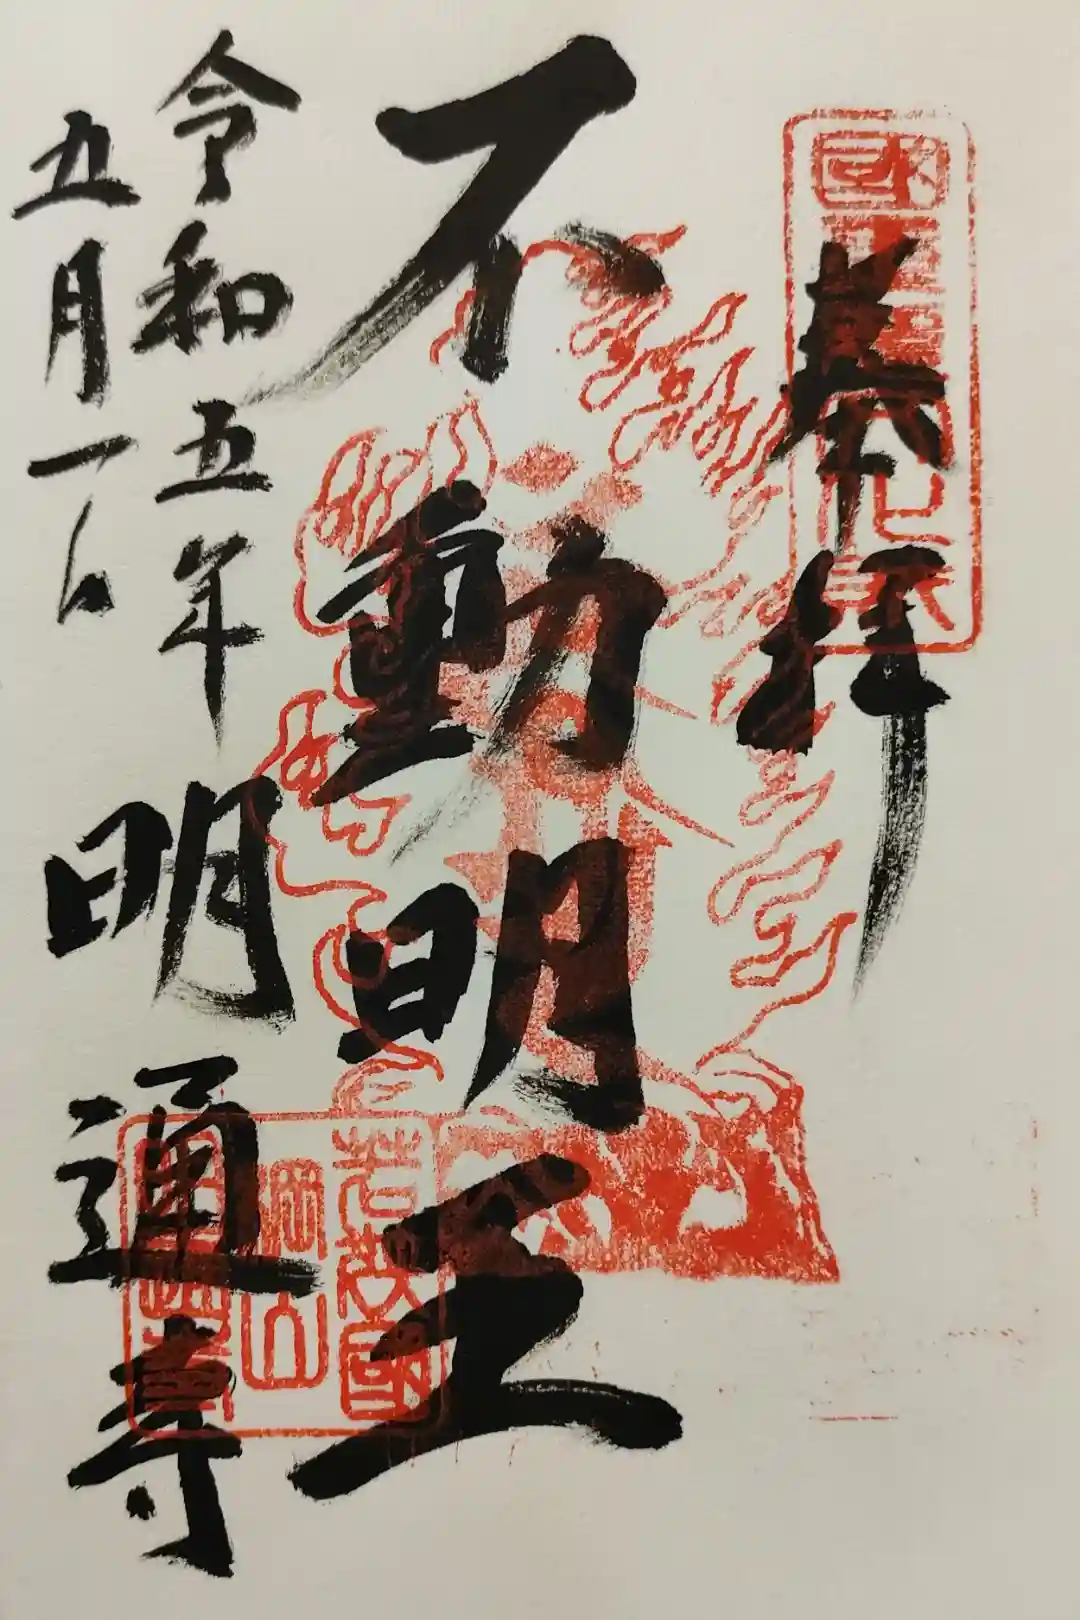 奉拝
不動明王
令和五年
五月一日
明通寺
若狭國